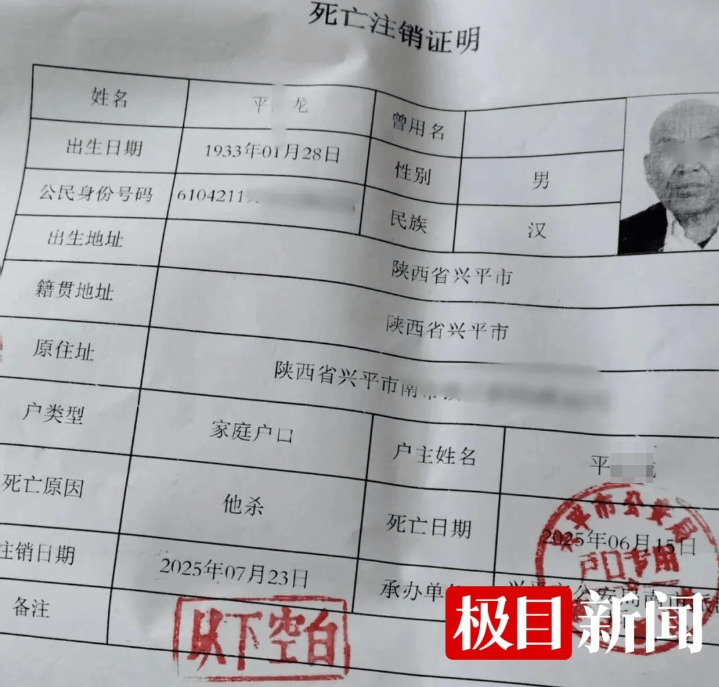 死亡注销证明
姓名 平 龙 曾用名
出生日期 1933年01月28日 性别 男
公民身份号码 6104211 民族 汉
出生地址 陕西省兴平市
籍贯地址 陕西省兴平市
原住址 陕西省兴平市南市
户类型 家庭户口 户主姓名 平
死亡原因 他杀 死亡日期 2025年06月15日
注销日期 2025年07月23日 承办单
备注 以下空白
兴平市公安局
户口专用
极目新闻